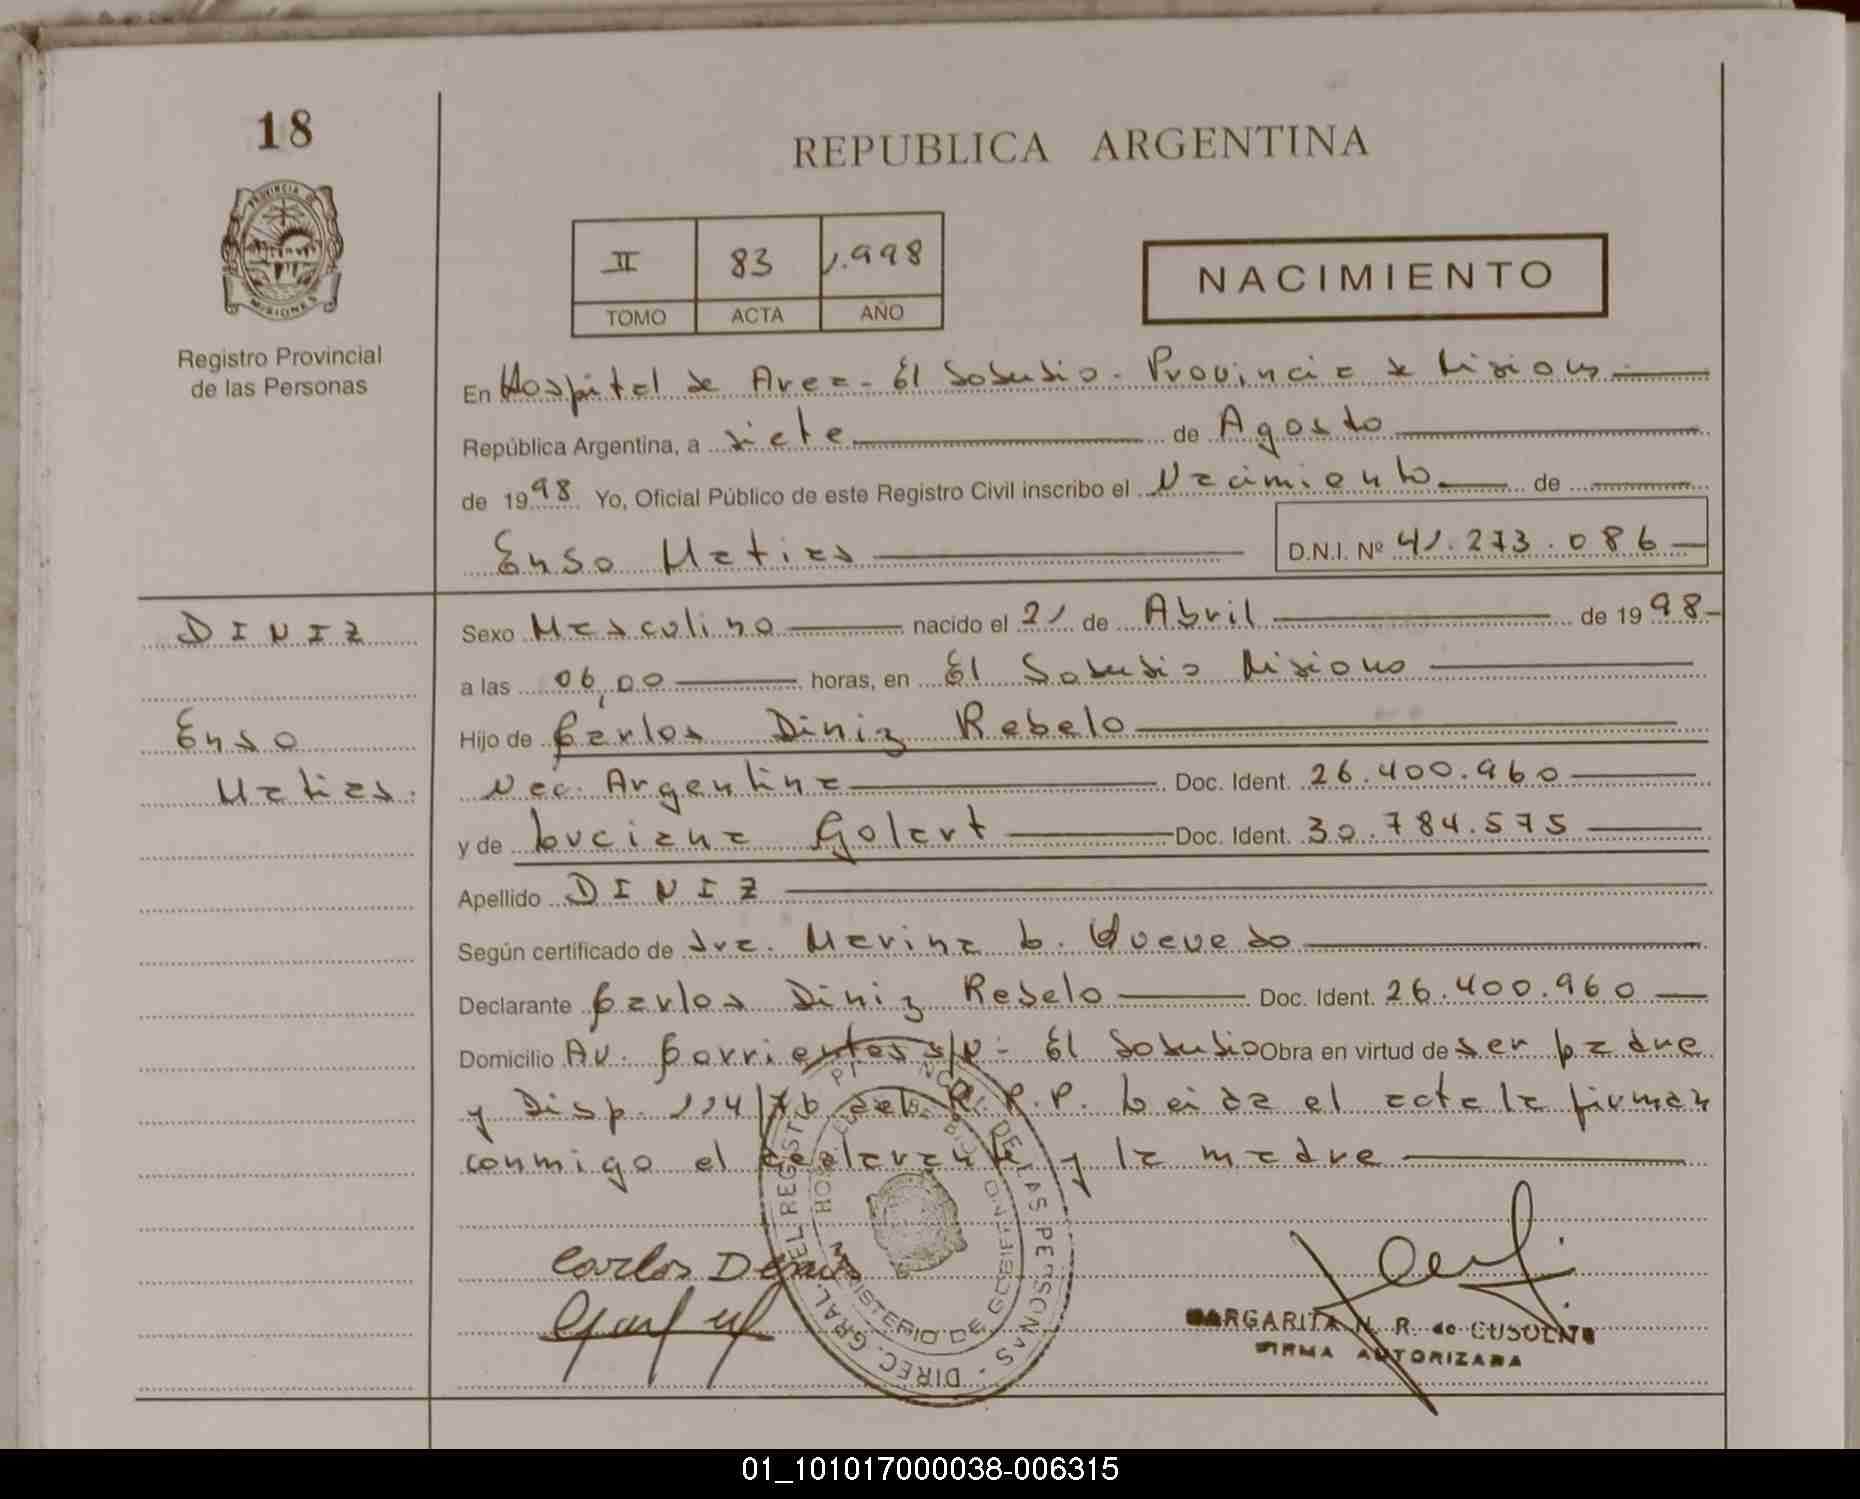 18
REPUBLICA ARGENTINA
PROVINCIA DE
MISIONES
II 83 1.998
TOMO ACTA AÑO
NACIMIENTO
Registro Provincial
de las Personas
En Hospital de Area - El Soberbio - Provincia de Misiones
República Argentina, a siete de Agosto
de 1998 Yo, Oficial Público de este Registro Civil inscribo el Nacimiento de
Enso Matias D.N.I. Nº 41.273.086
DINIZ
Enso
Matias.
Sexo Masculino nacido el 21 de Abril de 1998
a las 06,00 horas, en El Soberbio Misiones
Hijo de Carlos Diniz Rebelo
Nac. Argentina Doc. Ident. 26.400.960
y de Luciana Golart Doc. Ident. 30.784.575
Apellido DINIZ
Según certificado de Dra. Marina L. Quevedo
Declarante Carlos Diniz Rebelo Doc. Ident. 26.400.960
Domicilio Av. Corrientes s/N - El Soberbio Obra en virtud de ser padre
y Disp. 114/76 del R.P.P. Leida el acta la firman
conmigo el declarante y la madre
DIREC. GRAL. DEL REGISTRO DE LAS PERSONAS
MINISTERIO DE GOBIERNO
Carlos
MARGARITA N. R. de
FIRMA AUTORIZADA
01_101017000038-006315